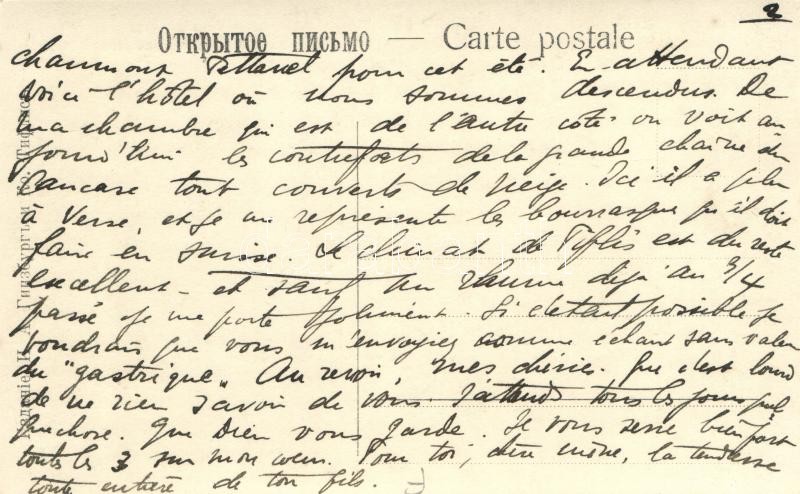 2
Открытое письмо — Carte postale
chaumont pour cet été. En attendant
voici l'hôtel où nous sommes descendus. De
ma chambre qui est de l'autre côté on voit au
jourd'hui les contreforts de la grande chaîne du
Caucase tout couverts de neige. Ici il a plu
à verse, et je me représente les bourrasques qu'il doit
faire en Suisse. Le climat de Tiflis est du reste
excellent – et sauf un rhume déjà au 3/4
passé je me porte joliment. Si c'était possible je
voudrais que vous m'envoyiez comme échant sans valeur
du "gastrique". Au revoir, mes chéries. Que c'est lourd
de ne rien savoir de vous. J'attends tous les jours quel
que chose. Que Dieu vous garde. Je vous serre bien fort
toutes les 3 sur mon cœur. Pour toi, chère mère, la tendresse
toute entière de ton fils. J